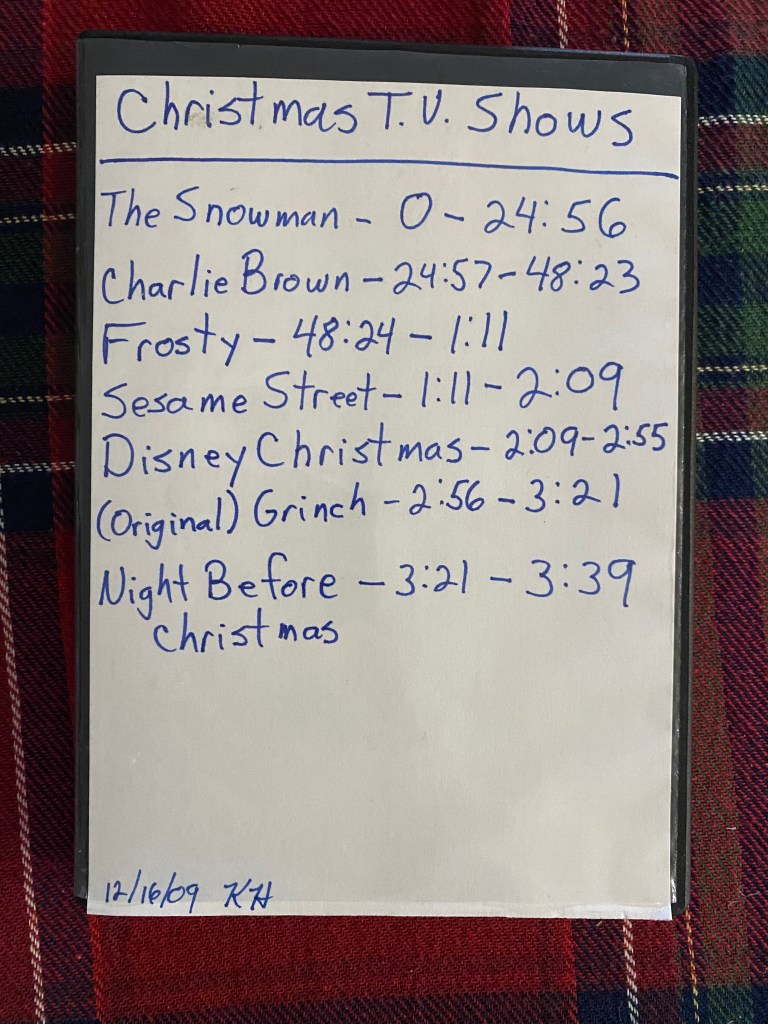 Christmas T.V. Shows
The Snowman - 0 - 24:56
Charlie Brown - 24:57 - 48:23
Frosty - 48:24 - 1:11
Sesame Street - 1:11 - 2:09
Disney Christmas - 2:09 - 2:55
(Original) Grinch - 2:56 - 3:21
Night Before - 3:21 - 3:39
Christmas
12/16/09 KH